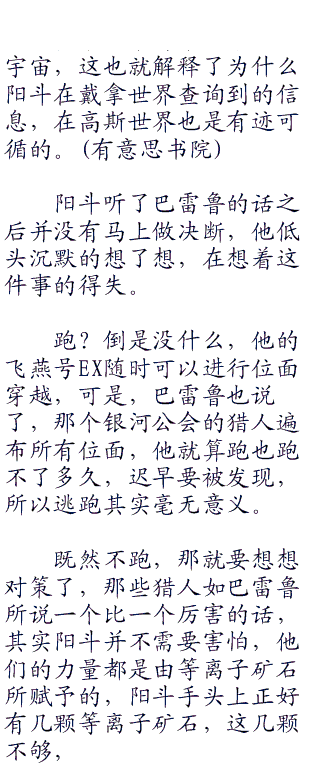 宇宙，这也就解释了为什么
阳斗在戴拿世界查询到的信
息，在高斯世界也是有迹可
循的。(有意思书院)
阳斗听了巴雷鲁的话之
后并没有马上做决断，他低
头沉默的想了想，在想着这
件事的得失。
跑？倒是没什么，他的
飞燕号EX随时可以进行位面
穿越，可是，巴雷鲁也说
了，那个银河公会的猎人遍
布所有位面，他就算跑也跑
不了多久，迟早要被发现，
所以逃跑其实毫无意义。
既然不跑，那就要想想
对策了，那些猎人如巴雷鲁
所说一个比一个厉害的话，
其实阳斗并不需要害怕，他
们的力量都是由等离子矿石
所赋予的，阳斗手头上正好
有几颗等离子矿石，这几颗
不够，